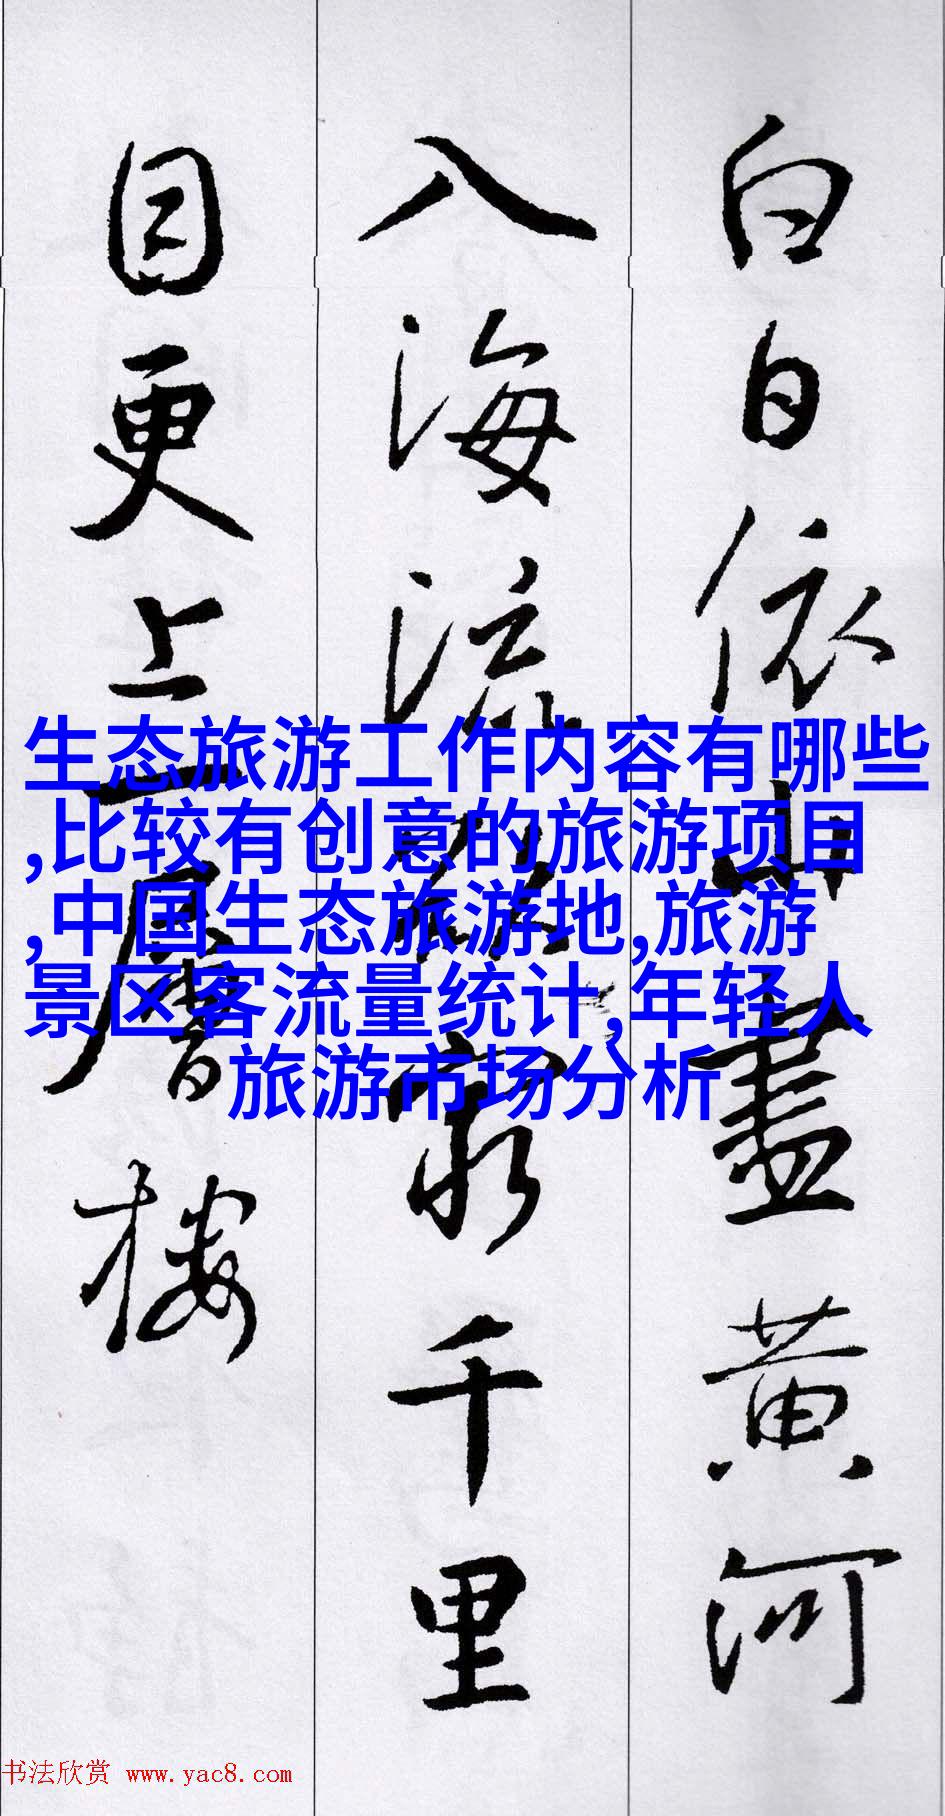 白日依山盡黄河
入海流欲窮千里
目更上一層樓
生态旅游工作内容有哪些
,比较有创意的旅游项目
,中国生态旅游地,旅游
景区客流量统计,年轻人
旅游市场分析
书法欣赏 www.yac8.com